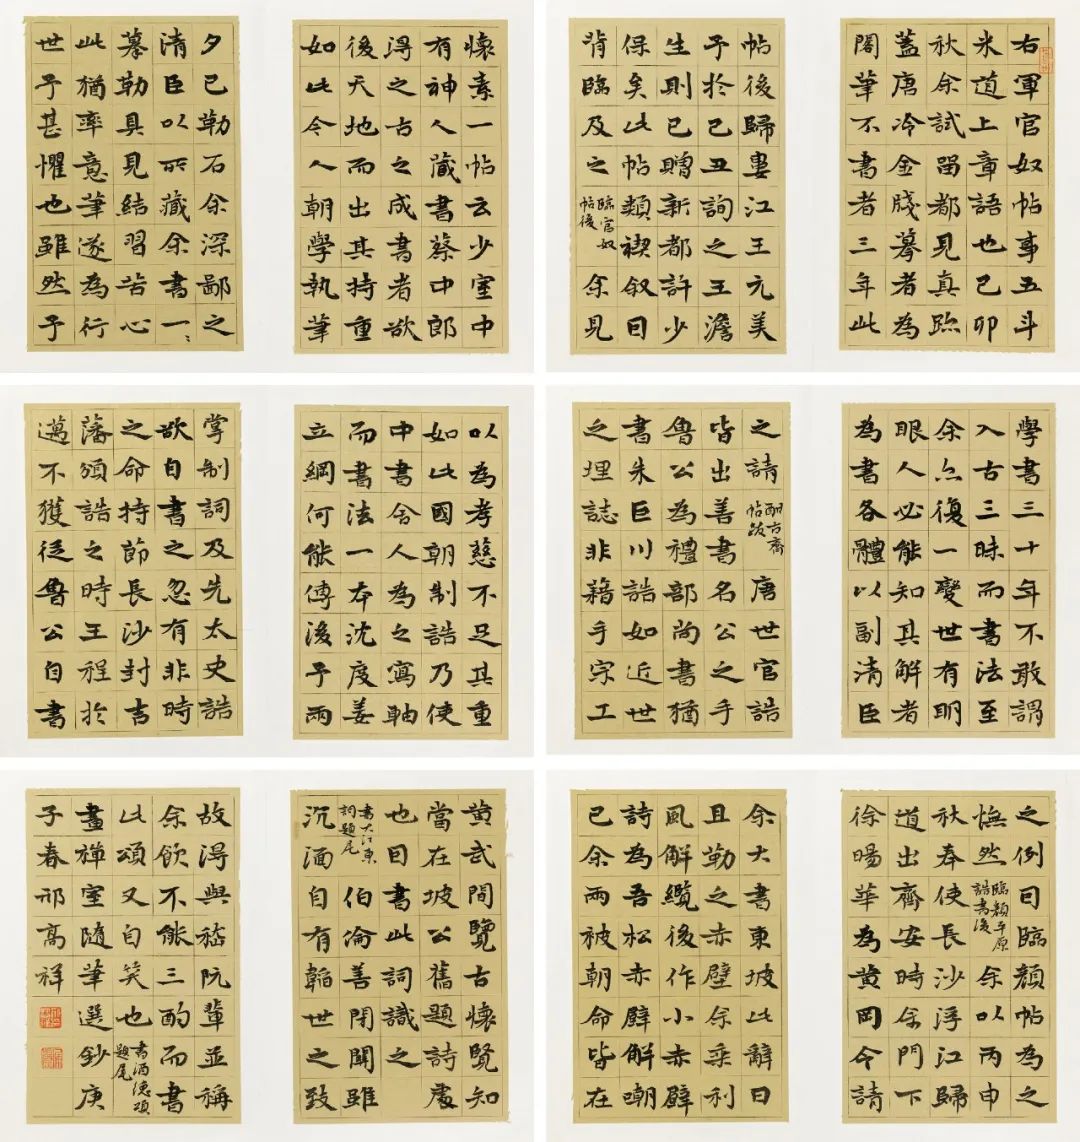 右軍官奴帖事五斗
米道上章語也己卯
秋余試留都見真跡
蓋唐冷金牋摹者為
閣筆不書者三年此
帖後歸婁江王元美
予於己丑詢之王澹
生則已贈新都許少
保矣此帖類禊叙囙
背臨及之臨官奴帖後余見
懷素一帖云少室中
有神人藏書蔡中郎
得之古之成書者欲
後天地而出其持重
如此今人朝學執筆
夕已勒石余深鄙之
清臣以所藏余書一〻
摹勒具見結習苦心
此猶率意筆遂為行
世予甚懼也雖然予
學書三十年不敢謂
入古三昧而書法至
余亦復一變世有明
眼人必能知其解者
為書各體以副清臣
之請酣古齋帖跋唐世官誥
皆出善書名公之手
魯公為禮部尚書猶
書朱巨川誥如近世
之埋誌非藉手宗工
以為孝慈不足其重
如此國朝制誥乃使
中書舍人為之寫軸
而書法一本沈度姜
立綱何能傳後予兩
掌制詞及先太史誥
欲自書之忽有非時
之命持節長沙封吉
藩頒誥之時王程於
邁不獲從魯公自書
之例囙臨顏帖為之
憮然臨顏平原誥書後余以丙申
秋奉使長沙浮江歸
道出齊安時余門下
徐暘華為黃岡令請
余大書東坡此辭囙
且勒之赤壁余乘利
風解纜後作小赤壁
詩為吾松赤壁解嘲
已余兩被朝命皆在
黃武間覽古懷賢知
當在坡公舊題詩處
也囙書此詞識之
書大江東詞題尾伯倫善閉關雖
沉湎自有韜世之致
故得與嵇阮輩並稱
余飲不能三酌而書
此頌又自笑也書酒德頌題尾
畫禪室隨筆選鈔庚
子春邢高祥